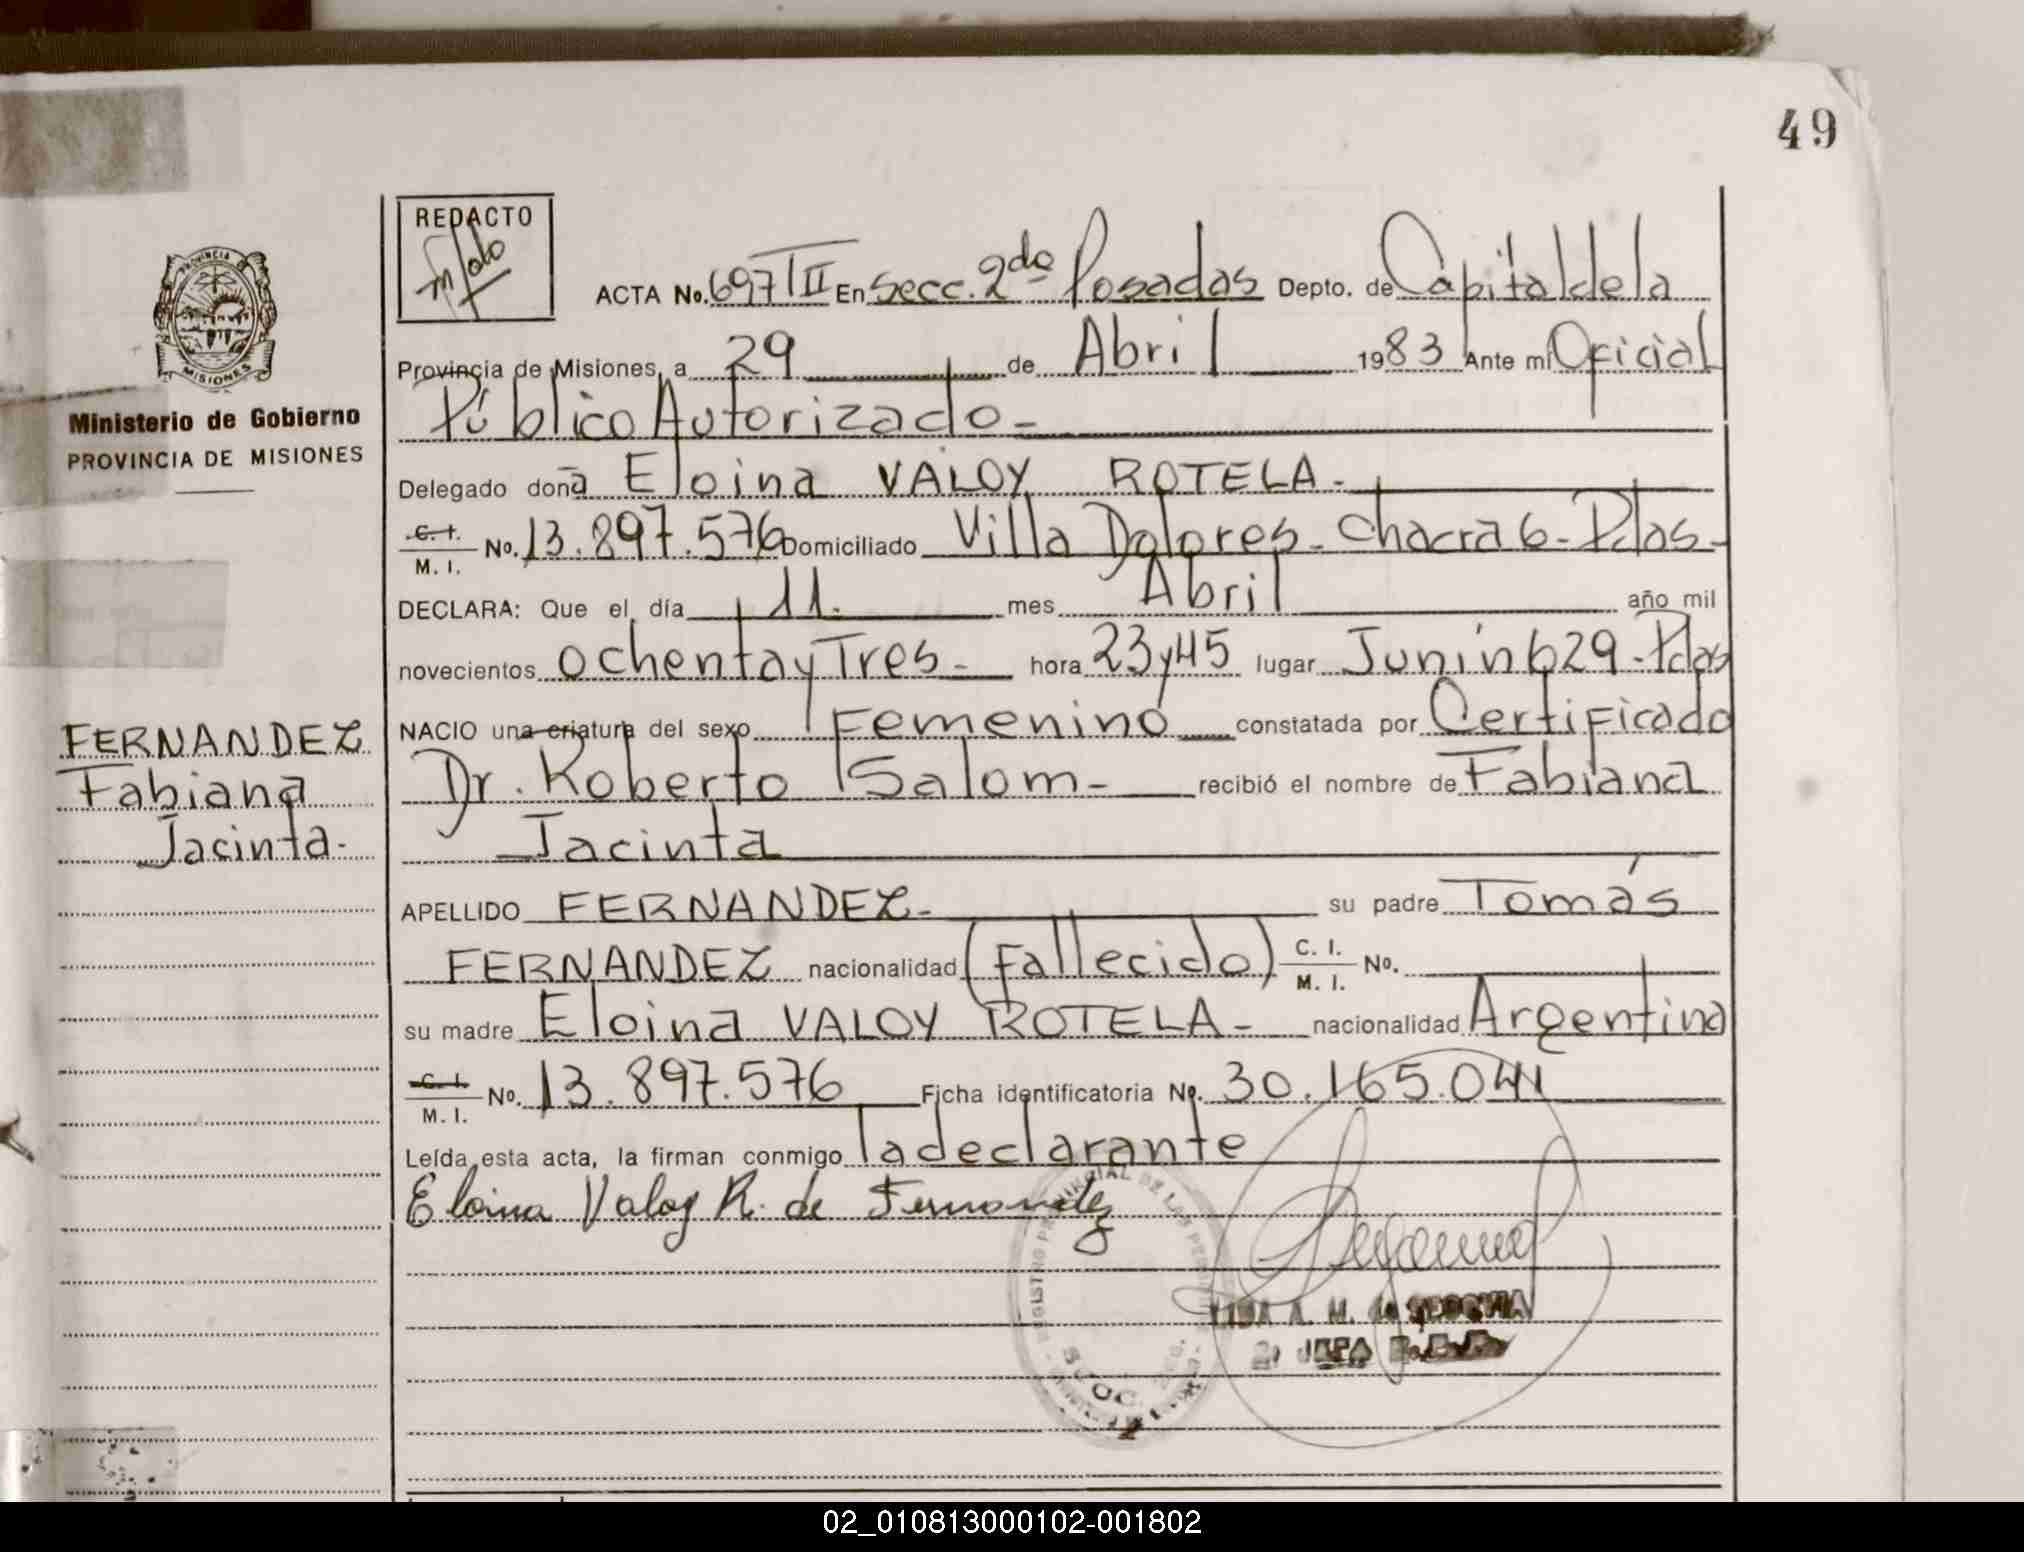 49
REDACTO
ACTA No. 697 TII En Secc. 2do Posadas Depto. de Capital de la
Provincia de Misiones, a 29 de Abril 1983 Ante mi Oficial
Público Autorizado-
Delegado doña Eloina VALOY ROTELA-
C. I. M. I. No. 13.897.576 Domiciliado Villa Dolores - Chacra 6- Pdas-
DECLARA: Que el día 11. mes Abril año mil
novecientos ochenta y Tres- hora 23 y 45 lugar Junín 629 - Pdas
NACIO una criatura del sexo Femenino constatada por Certificado
Dr. Roberto Salom- recibió el nombre de Fabiana
Jacinta
APELLIDO FERNANDEZ- su padre Tomás
FERNANDEZ nacionalidad (Fallecido) C. I. M. I. No.
su madre Eloina VALOY ROTELA- nacionalidad Argentina
C. I. M. I. No. 13.897.576 Ficha identificatoria No. 30.165.041
Leída esta acta, la firman conmigo la declarante
Eloina Valoy R. de Fernandez
A. M. de SEGOVIA
JEFA
PROVINCIA
MISIONES
Ministerio de Gobierno
PROVINCIA DE MISIONES
FERNANDEZ
Fabiana
Jacinta-
02_010813000102-001802